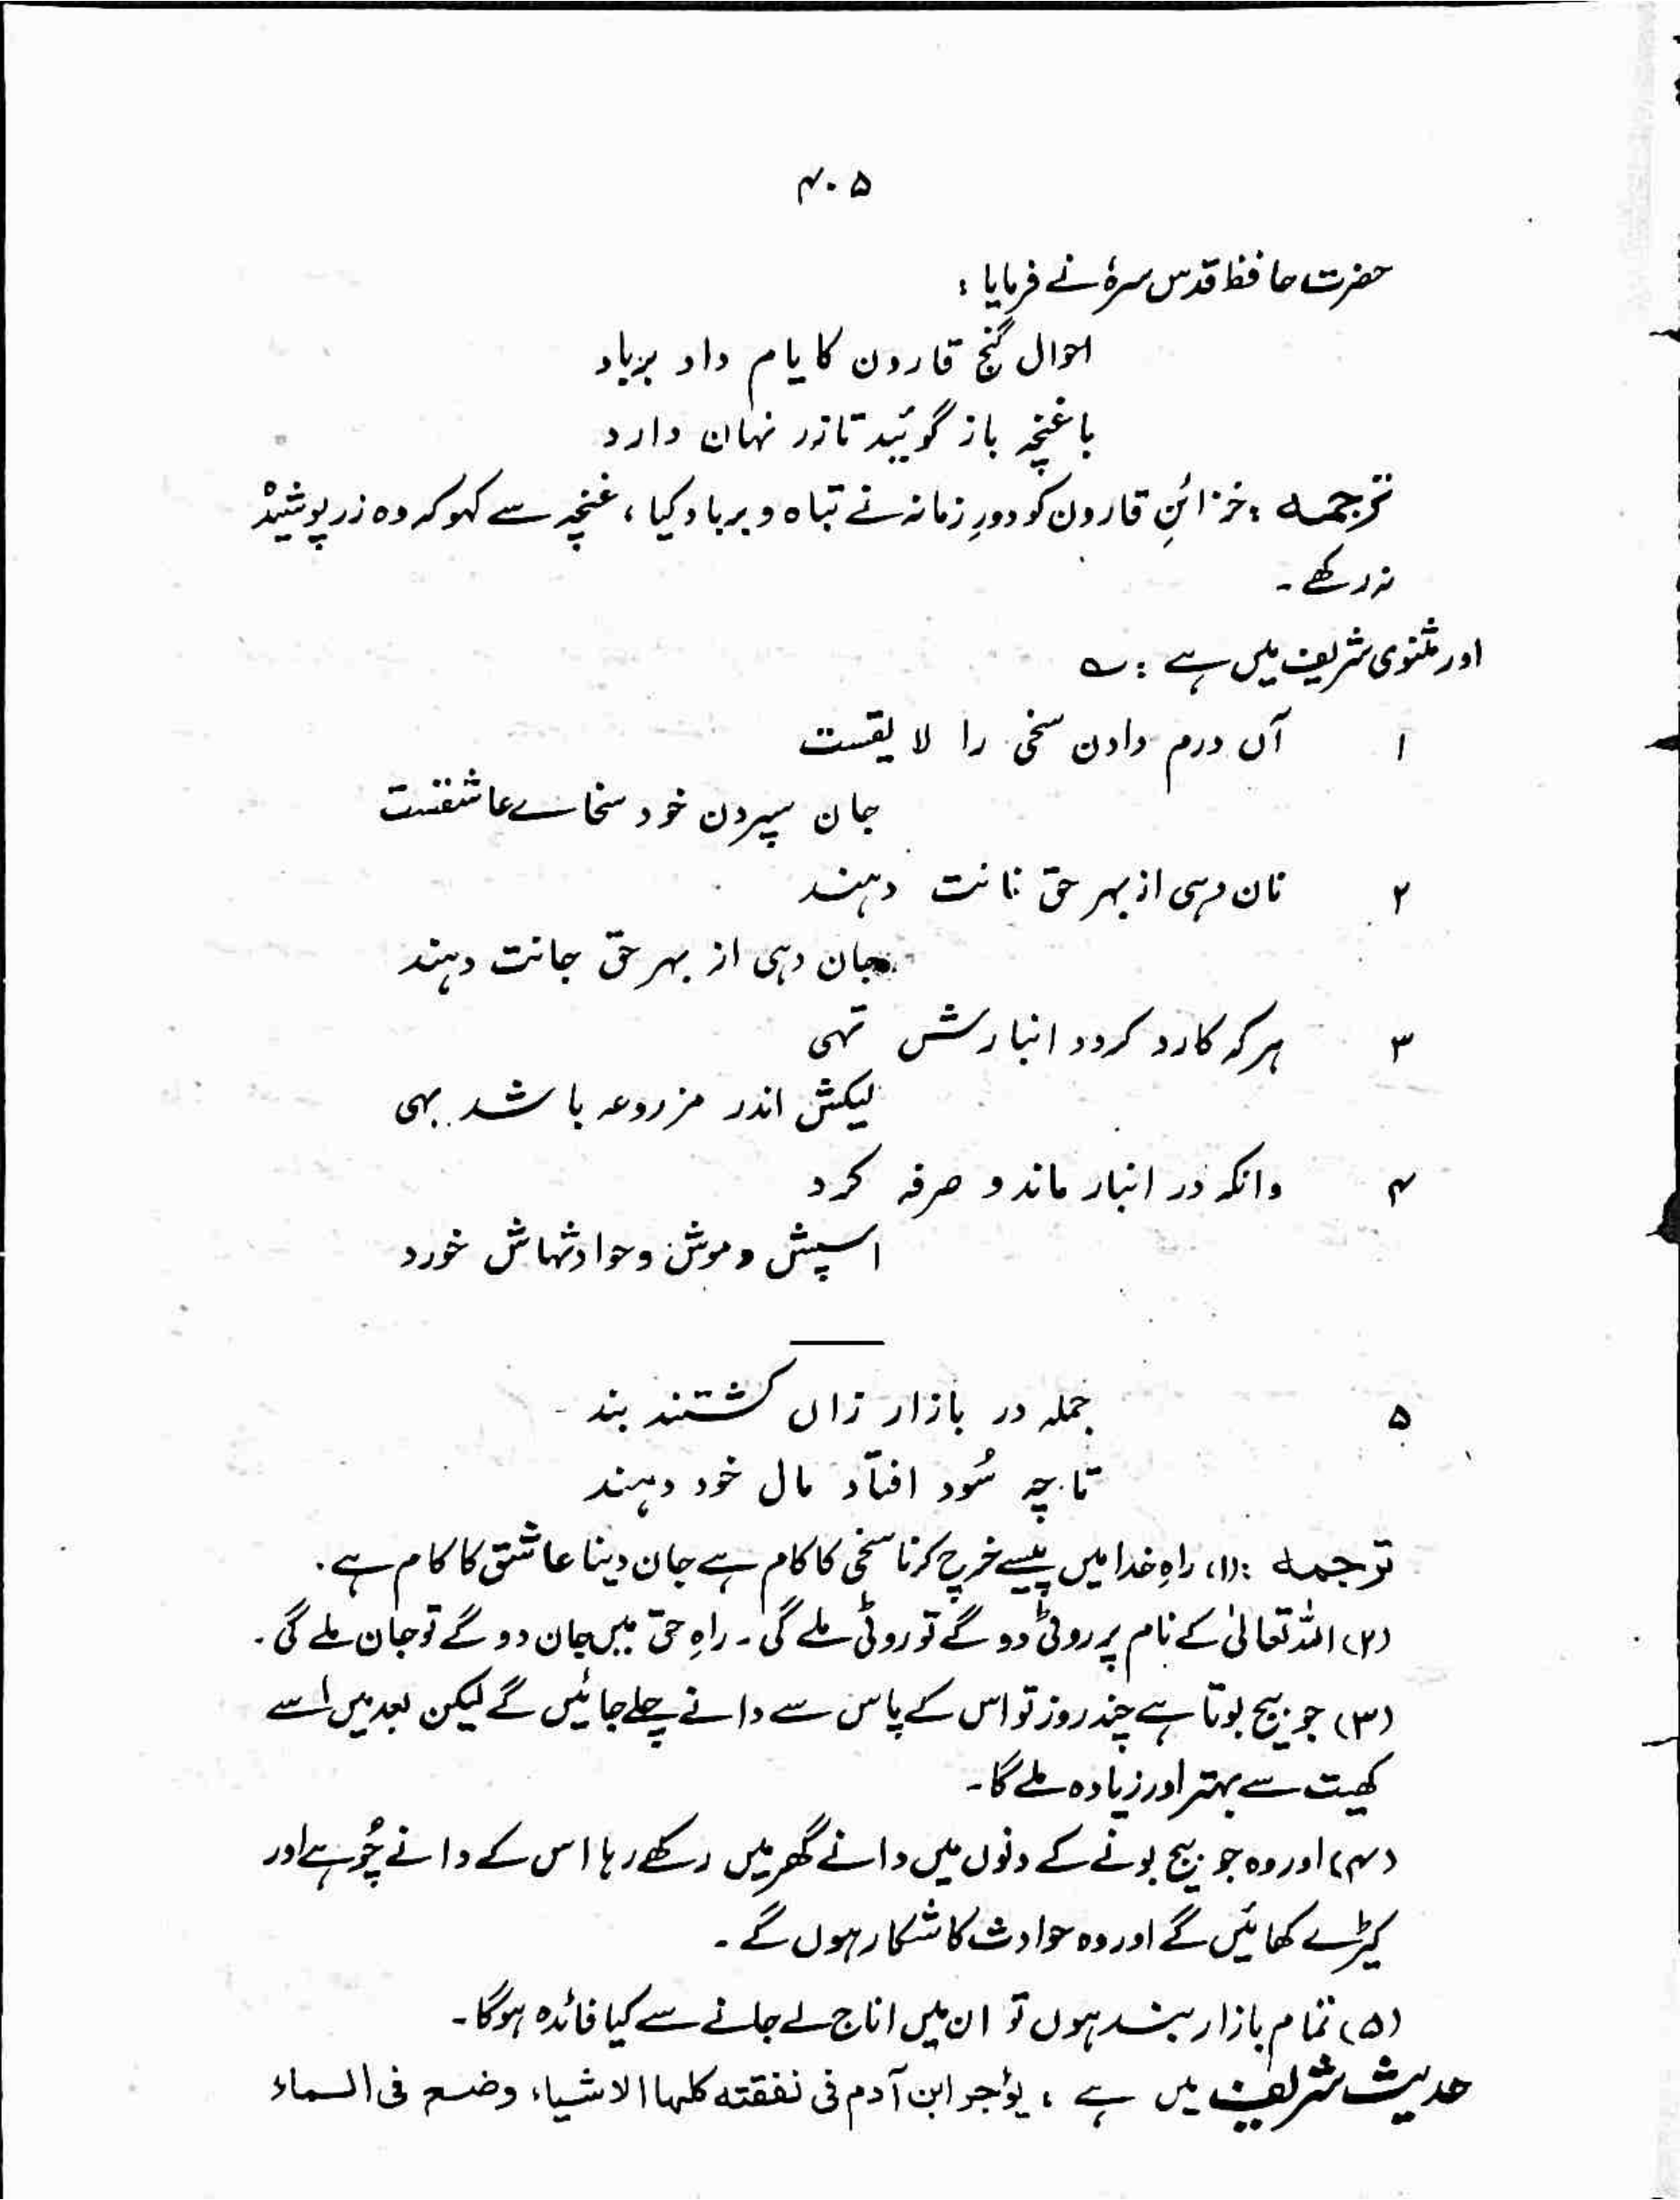 ۴۰۵
حضرت حافظ قدس سرہٗ نے فرمایا :
احوال گنج قارون کایام داد برباد
باغنچہ باز گوئید تازر نہان دارد
ترجمہ : خزائنِ قارون کو دورِ زمانہ نے تباہ و برباد کیا ، غنچہ سے کہو کہ وہ زر پوشیدہ
نہ رکھے ۔
اور مثنوی شریف میں ہے : ؎
۱ آں درم دادن سخی را لا یقست
جان سپردن خود سخاے عاشقست
۲ نان دہی از بہر حق نانت دہند
جان دہی از بہر حق جانت دہند
۳ ہرکہ کارد کردد انبارش تہی
لیکش اندر مزروعہ باشد بہی
۴ وانکہ در انبار ماند و صرفہ کرد
اسپش و موش و حوادثہاش خورد
۵ جملہ در بازار زاں کشتند بند
تا چہ سُود افتاد مال خود دہند
ترجمہ : (۱) راہِ خدا میں پیسے خرچ کرنا سخی کا کام ہے جان دینا عاشق کا کام ہے ۔
(۲) اللہ تعالیٰ کے نام پر روٹی دو گے تو روٹی ملے گی ۔ راہِ حق میں جان دو گے تو جان ملے گی ۔
(۳) جو بیج بوتا ہے چند روز تو اس کے پاس سے دانے چلے جائیں گے لیکن بعد میں اسے
کھیت سے بہتر اور زیادہ ملے گا ۔
(۴) اور وہ جو بیج بونے کے دنوں میں دانے گھر میں رکھے رہا اس کے دانے چُوہے اور
کیڑے کھائیں گے اور وہ حوادث کا شکار ہوں گے ۔
(۵) تمام بازار بند ہوں تو ان میں اناج لے جانے سے کیا فائدہ ہوگا ۔
حدیث شریف میں ہے ، یؤجر ابن آدم فی نفقتہ کلہا الا شیاء وضع فی السماء